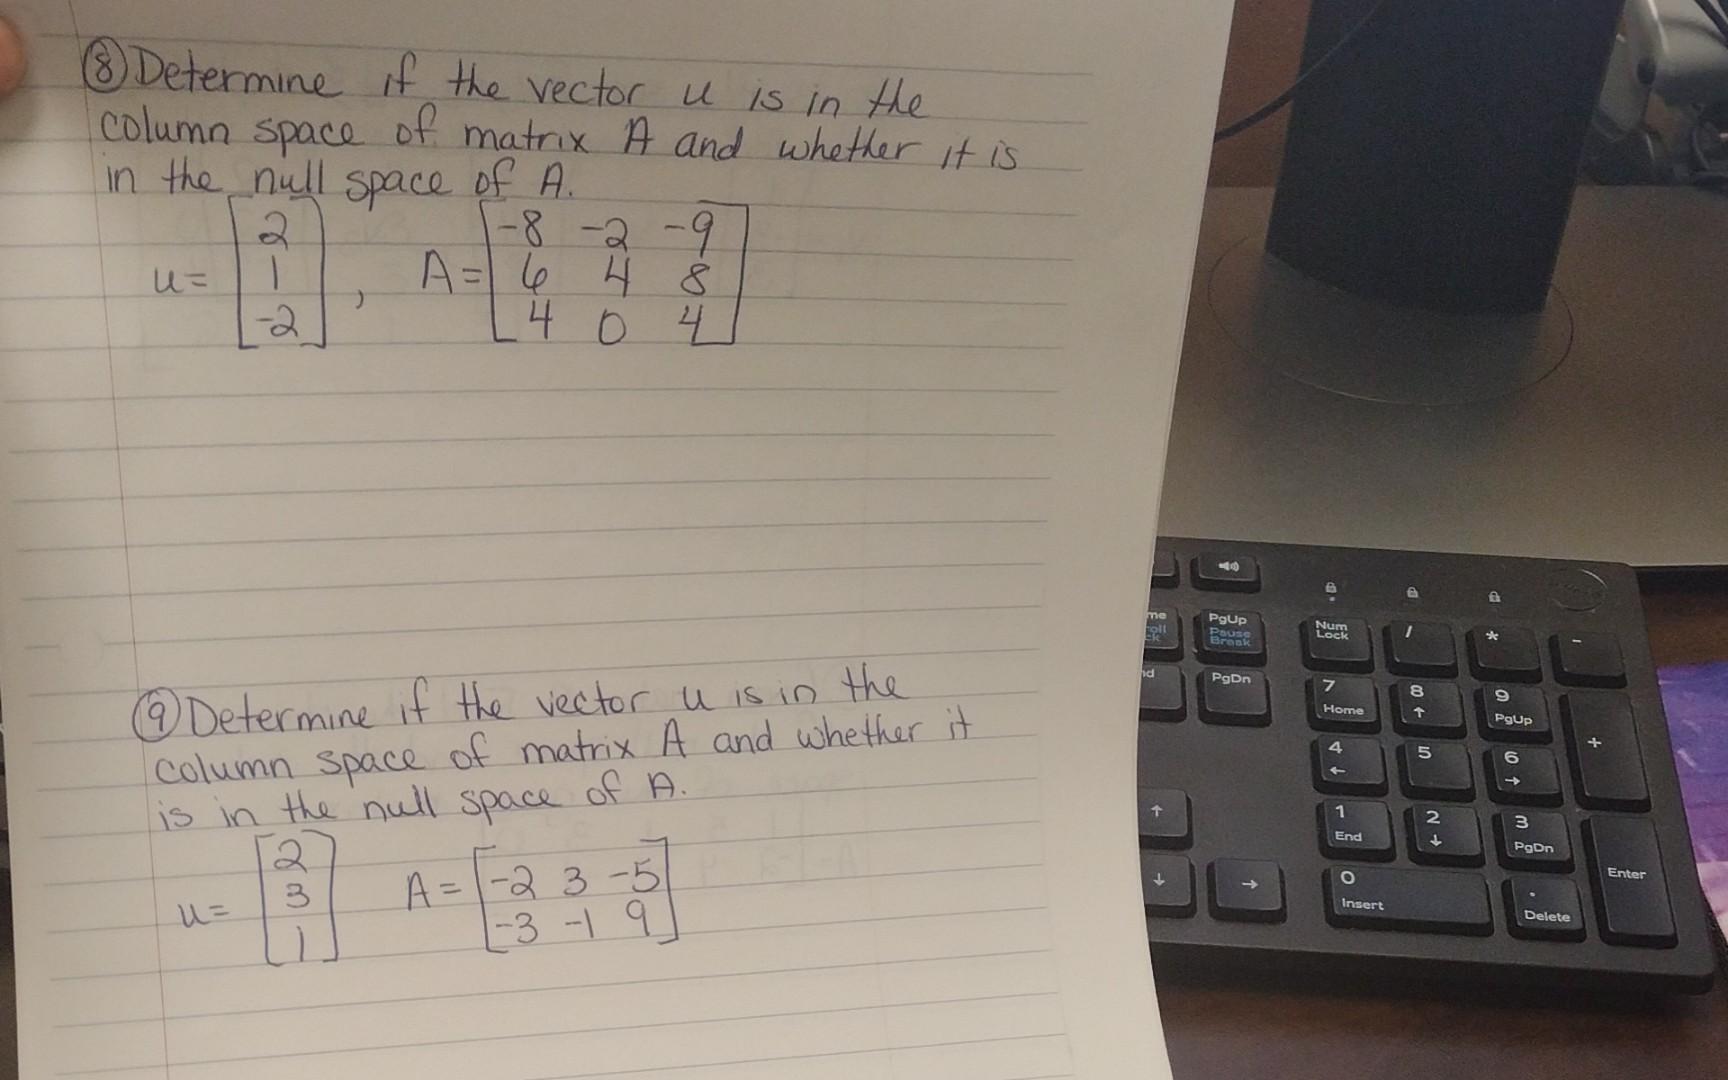 ⑧ Determine if the vector u is in the
column space of matrix A and whether it is
in the null space of A.
u= [2 1 -2], A= [-8 -2 -9
6 4 8
4 0 4]
⑨ Determine if the vector u is in the
column space of matrix A and whether it
is in the null space of A.
u= [2 3 1] A= [-2 3 -5
-3 -1 9]
PgUp
Pause
Break
PgDn
Num
Lock
/
*
-
7
Home
8
↑
9
PgUp
+
4
←
5
6
→
1
End
2
↓
3
PgDn
Enter
0
Insert
.
Delete
↑
↓
→